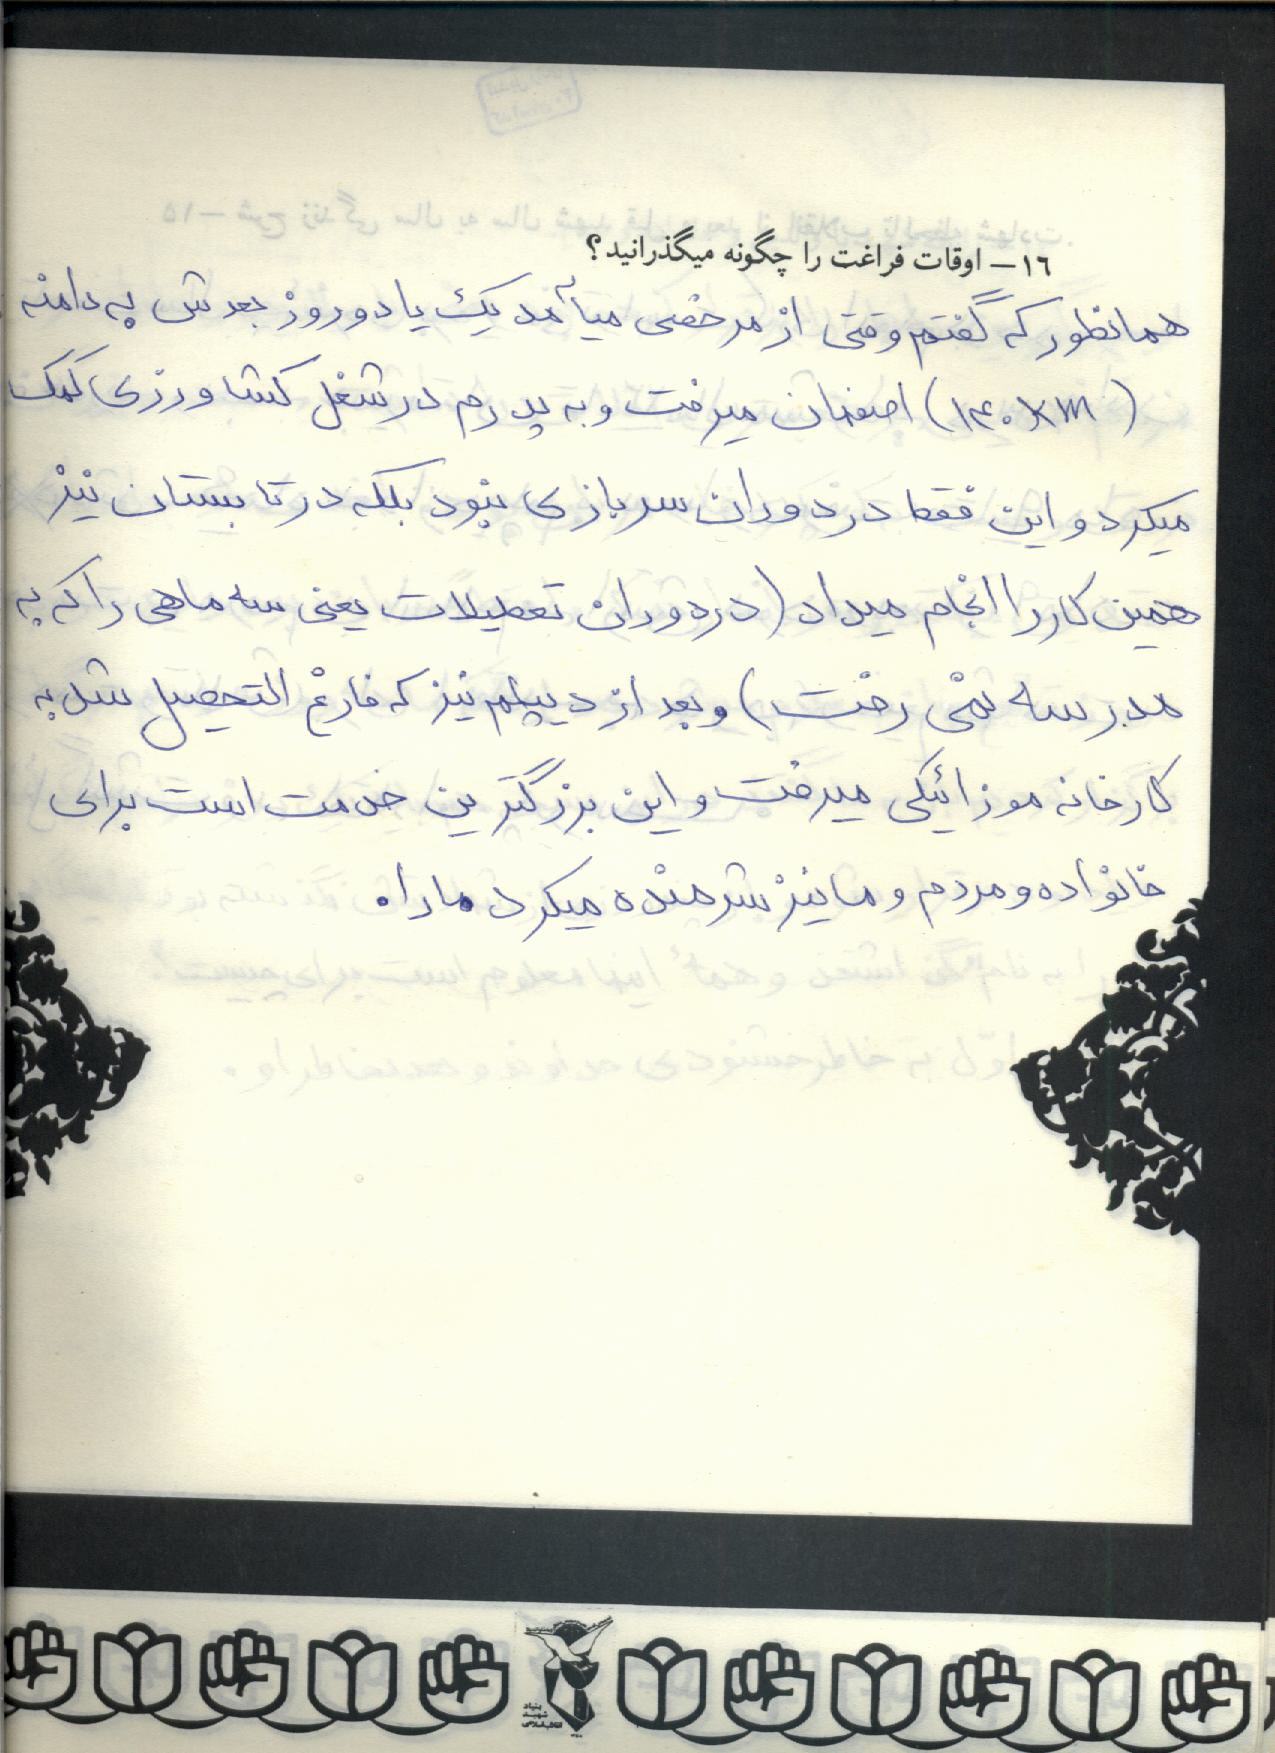 ۱۶– اوقات فراغت را چگونه میگذرانید؟
همانطور که گفتم وقتی از مرخصی میآمد یک یا دو روز بعدش به دامنه
(۱۴۰KM) اصفهان میرفت و به پدرم در شغل کشاورزی کمک
میکرد و این فقط در دوران سربازی نبود بلکه در تابستان نیز
همین کار را انجام میداد (در دوران تعطیلات یعنی سه ماهی را که به
مدرسه نمی رفت) و بعد از دیپلم نیز که فارغ التحصیل شد به
کارخانه موزائیکی میرفت و این بزرگترین خدمت است برای
خانواده و مردم و ما نیز شرمنده میکرد مارا.
بنیاد
شهید
انقلاب اسلامی